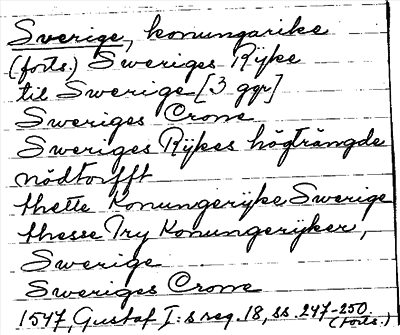 Sverige, konungarike
(forts.) Sweriges Rijke
til Swerige [3 ggr]
Sweriges Crone
Sweriges Rijkes högträngde
nödtorfft
thette Konungerijke Swerige
thesse Try Konungerijker,
Swerige
Sweriges Crone
1547, Gustaf I:s reg. 18, ss. 247-250
(forts.)